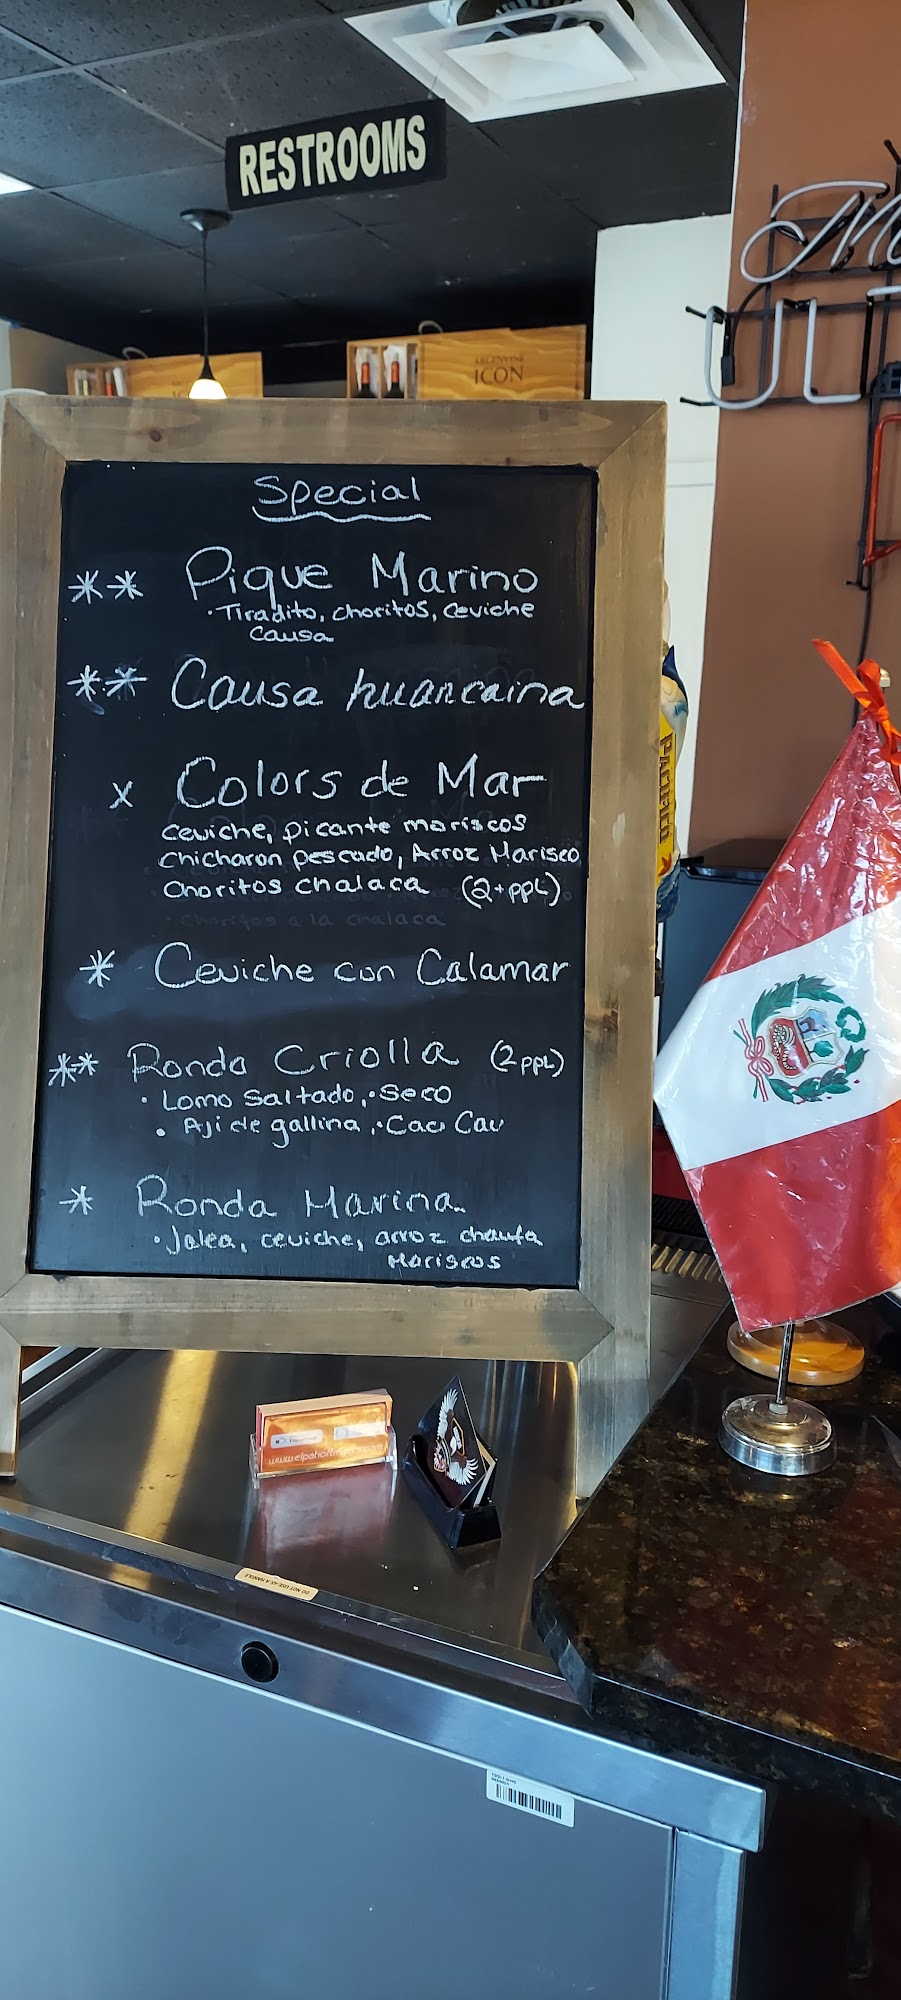 RESTROOMS
ARGENTINE
ICON
M
ULT
Special
** Pique Marino
·Tiradito, choritos, ceviche
causa
** Causa huancaina
x Colors de Mar
ceviche, picante mariscos
chicharon pescado, Arroz Marisco
Choritos chalaca (2+ppl)
choritos a la chalaca
* Ceviche con Calamar
** Ronda Criolla (2ppl)
· Lomo Saltado,·Seco
· Aji de gallina,·Cau Cau
* Ronda Marina
·Jalea, ceviche, arroz chaufa
Mariscos
PACIFICO
DO NOT USE AS A HANDLE